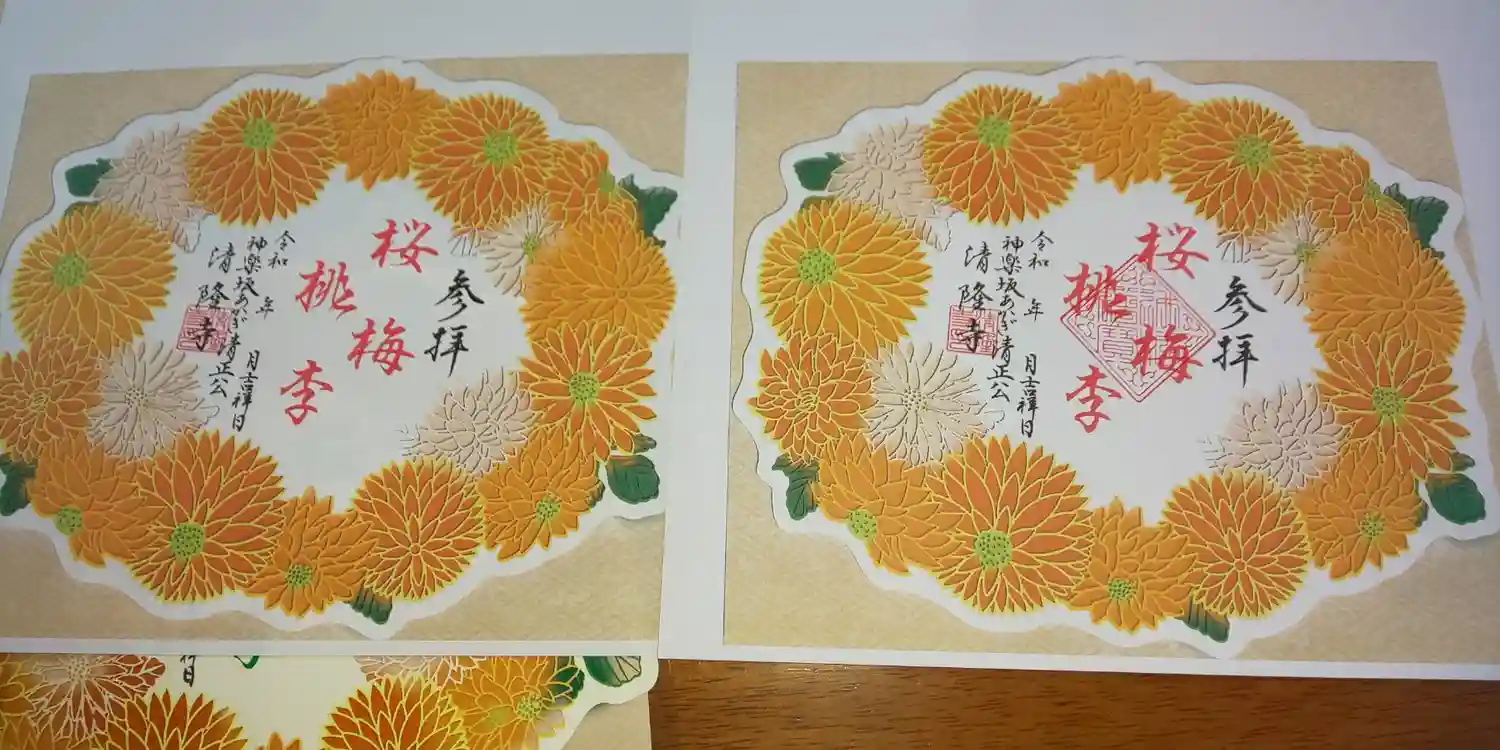 参拝
桜梅
桃李
令和 年 月吉祥日
神楽坂あかぎ清正公
清隆寺
参拝
桜梅
桃李
令和 年 月吉祥日
神楽坂あかぎ清正公
清隆寺
日